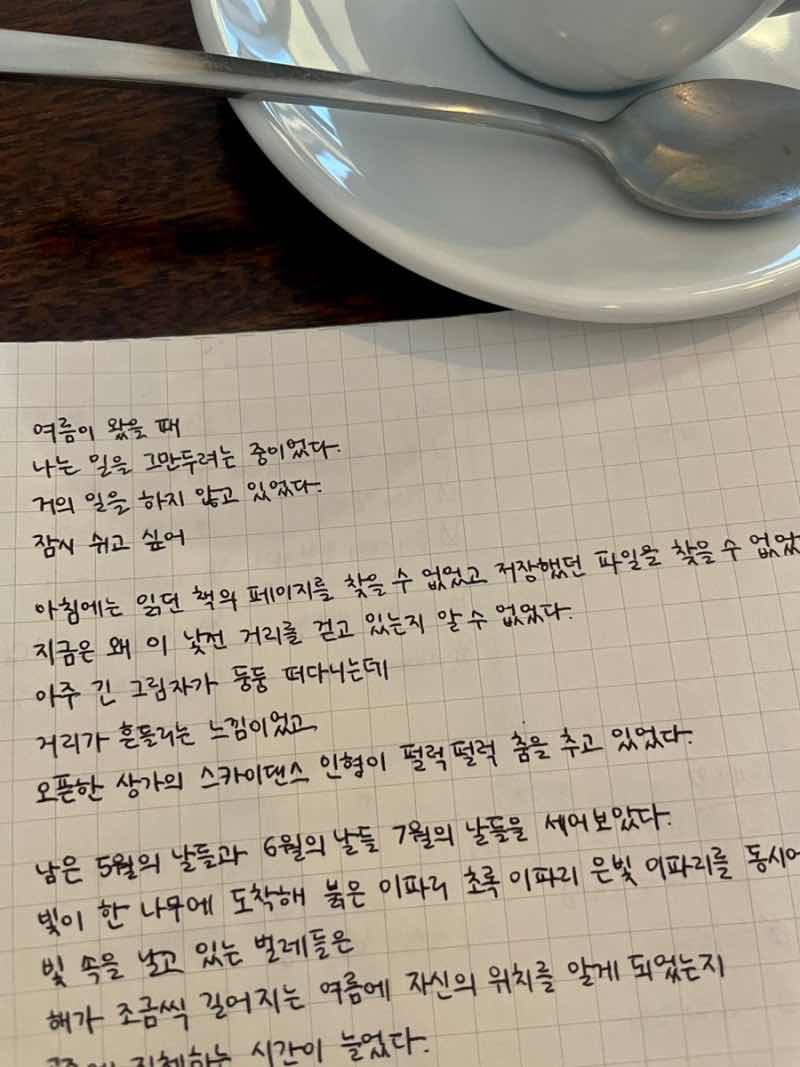 여름이 왔을 때
나는 일을 그만두려는 중이었다.
거의 일을 하지 않고 있었다.
잠시 쉬고 싶어
아침에는 읽던 책의 페이지를 찾을 수 없었고 저장했던 파일을 찾을 수 없었
지금은 왜 이 낮전 거리를 걷고 있는지 알 수 없었다.
아주 긴 그림자가 둥둥 떠다니는데
거리가 흔들리는 느낌이었고,
오픈한 상가의 스카이댄스 인형이 펄럭펄럭 춤을 추고 있었다.
남은 5월의 날들과 6월의 날들 7월의 날들을 세어보았다.
빛이 한 나무에 도착해 붉은 이파리 초록 이파리 은빛 이파리를 동시에
빛 속을 날고 있는 벌레들은
해가 조금씩 길어지는 여름에 자신의 위치를 알게 되었는지
지체하는 시간이 늘었다.